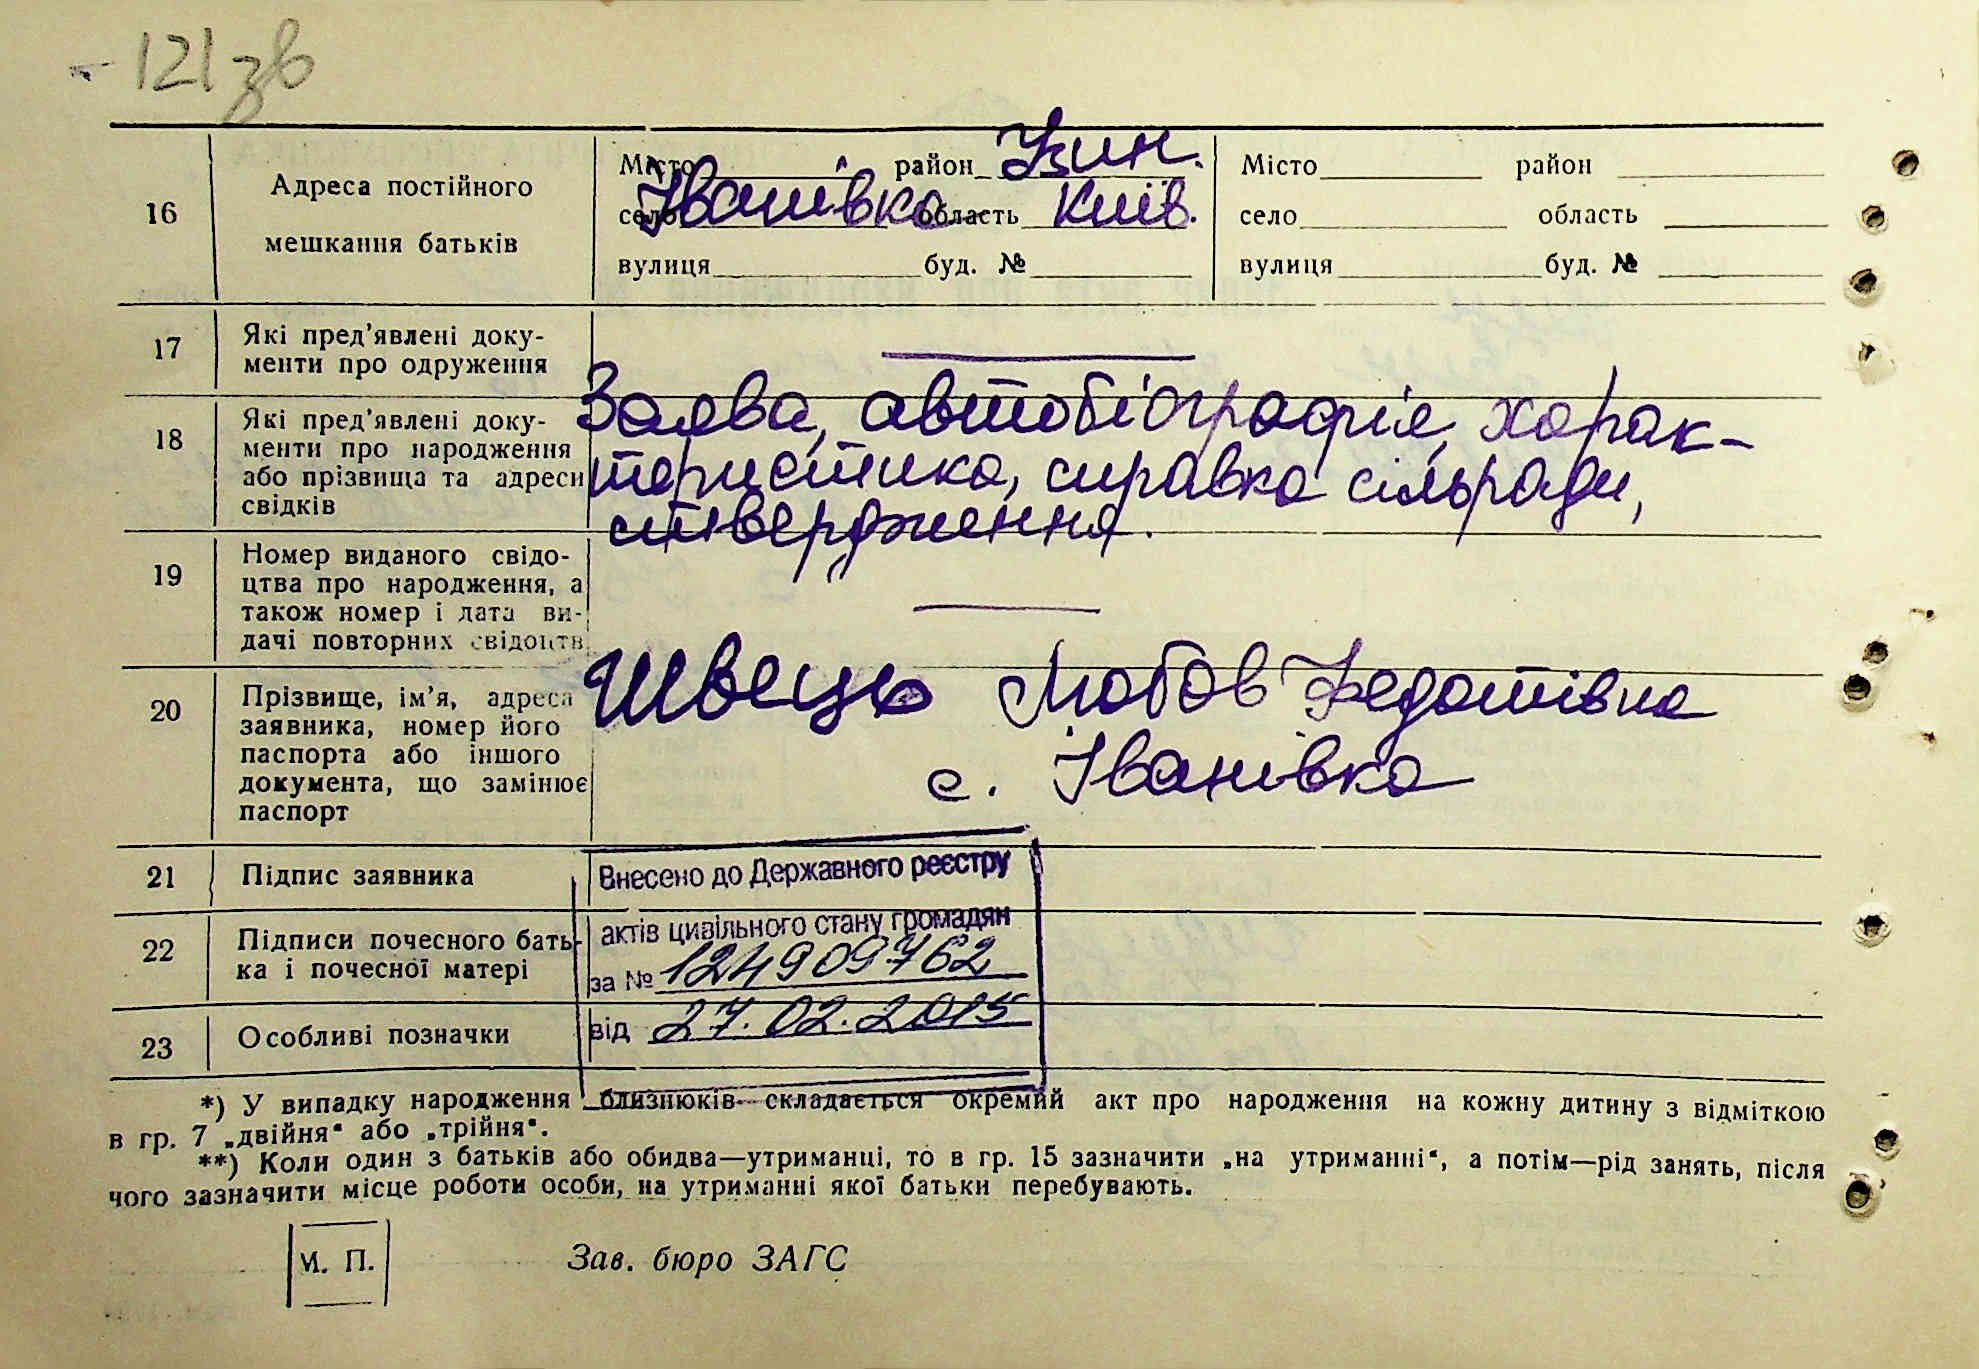 121 зв
16 Адреса постійного мешкання батьків
Місто район Узин.
село Іванівка область Київ.
вулиця буд. №
Місто район
село область
вулиця буд. №
17 Які пред'явлені доку-
менти про одруження
18 Які пред'явлені доку-
менти про народження
або прізвища та адреси
свідків
Заява, автобіографія, харак-
теристика, справка сільради,
ствердження.
19 Номер виданого свідо-
цтва про народження, а
також номер і дата ви-
дачі повторних свідоцтв
20 Прізвище, ім'я, адреса
заявника, номер його
паспорта або іншого
документа, що замінює
паспорт
Швець Любов Федотівна
с. Іванівка
21 Підпис заявника
22 Підписи почесного бать-
ка і почесної матері
23 Особливі позначки
Внесено до Державного реєстру
актів цивільного стану громадян
за № 124909762
від 27.02.2015
*) У випадку народження близнюків складається окремий акт про народження на кожну дитину з відміткою
в гр. 7 „двійня“ або „трійня“.
**) Коли один з батьків або обидва—утриманці, то в гр. 15 зазначити „на утриманні“, а потім—рід занять, після
чого зазначити місце роботи особи, на утриманні якої батьки перебувають.
М. П.
Зав. бюро ЗАГС